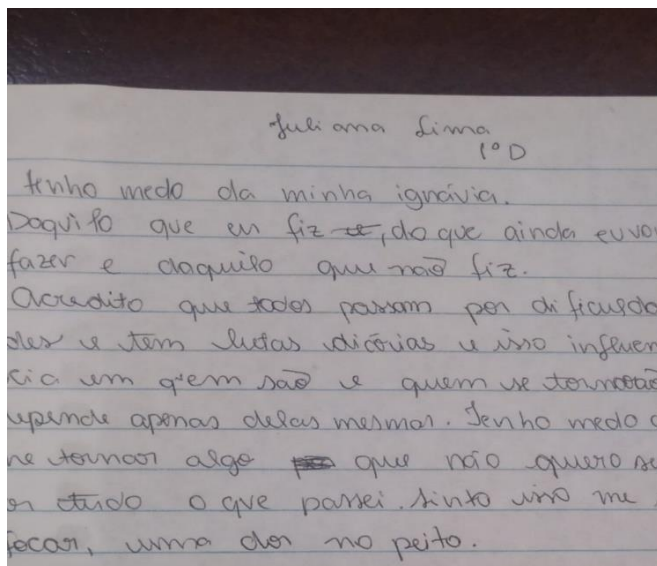 Juliana Lima
1º D
tenho medo da minha ignávia.
Daquilo que eu fiz, do que ainda eu vo
fazer e daquilo que não fiz.
Acredito que todos passam por dificulda
des e tem lutas diárias e isso influen
cia em quem são e quem se tornarão
epende apenas delas mesmas. Tenho medo d
me tornar algo que não quero se
or tudo o que passei. Sinto isso me s
focar, uma dor no peito.